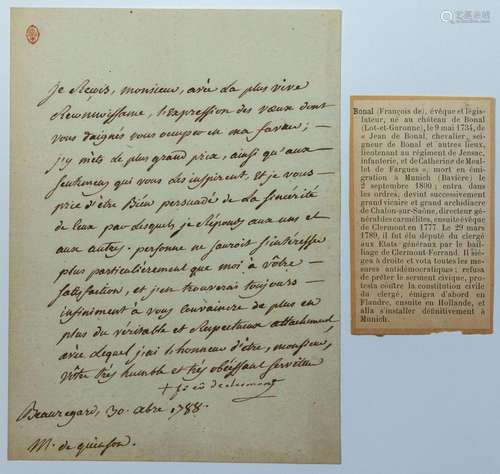 Je Reçois, monsieur, avec la plus vive
Reconnoissance, l'Expression des vœux dont
vous daignés vous occuper en ma faveur;
j'y mets le plus grand prix, ainsi qu'aux
sentimens qui vous les inspirent. Et je vous
prie d'être Bien persuadé de la sincérité
de Ceux par lesquels je Réponds aux uns et
aux autres. personne ne sauroit s'intéresse
plus particulièrement que moi à vôtre
satisfaction, et j'en trouverai toujours
infiniment à vous Convaincre de plus en
plus du véritable et Respectueux attachement
avec lequel j'ai l'honneur d'être, monsieur,
vôtre très humble et très obéissant serviteur
+ fr. év. de clermont
Beauregard, 30. xbre 1788.
M. de
Bonal (François de), évêque et légis-
lateur, né au château de Bonal
(Lot-et-Garonne), le 9 mai 1734, de
« Jean de Bonal, chevalier, sei-
gneur de Bonal et autres lieux,
lieutenant au régiment de Jensac,
infanterie, et de Catherine de Moul-
lot de Fargues », mort en émi-
gration à Munich (Bavière) le
2 septembre 1800; entra dans
les ordres, devint successivement
grand vicaire et grand archidiacre
de Chalon-sur-Saône, directeur gé-
néral des carmélites, ensuite évêque
de Clermont en 1777. Le 29 mars
1789, il fut élu député du clergé
aux Etats généraux par le bail-
liage de Clermont-Ferrand. Il siè-
gea à droite et vota toutes les me-
sures antidémocratiques; refusa
de prêter le serment civique, pro-
testa contre la constitution civile
du clergé, émigra d'abord en
Flandre, ensuite en Hollande, et
alla s'installer définitivement à
Munich.